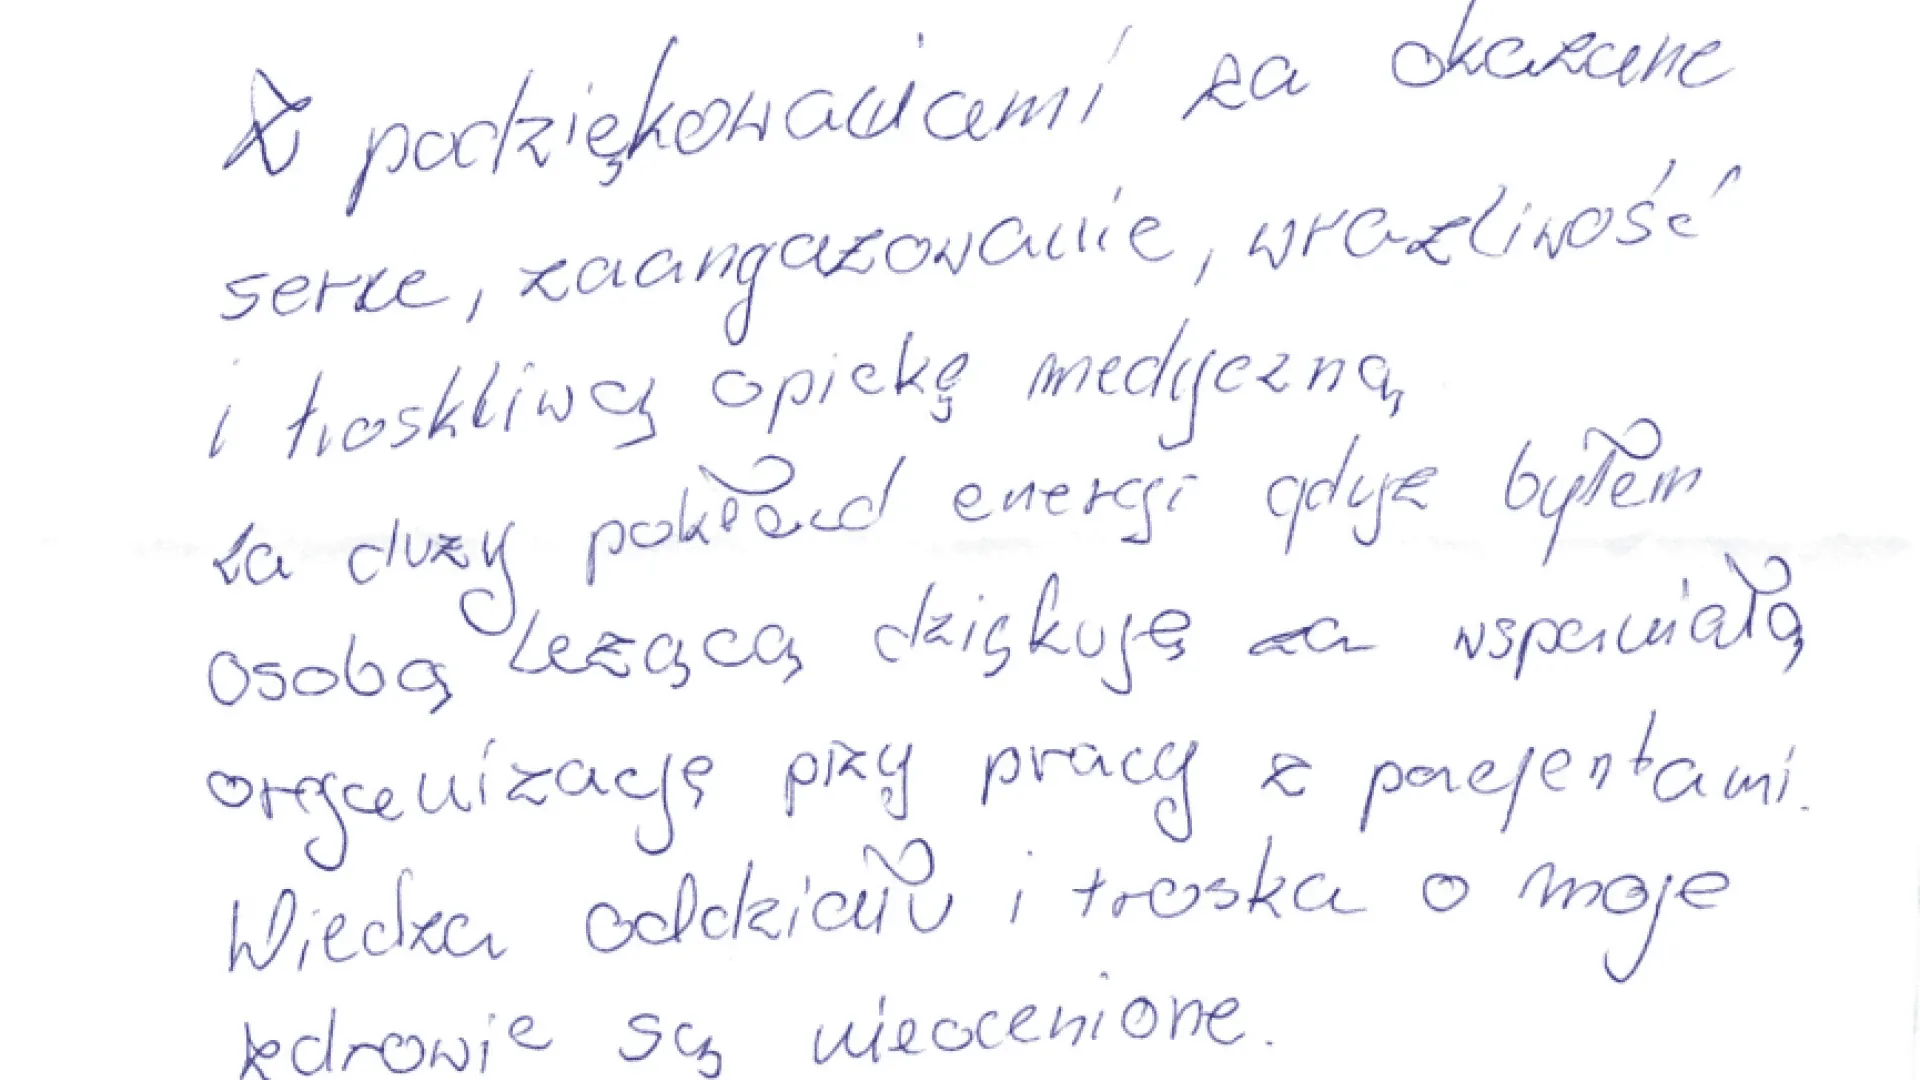 Z podziękowaniami za okazane
serce, zaangażowanie, wrażliwość
i troskliwą opiekę medyczną
za duży pokład energi gdyż byłem
osobą leżącą dziękuję za wspaniałą
organizację przy pracy z pacjentami.
Wiedza oddziału i troska o moje
zdrowie są nieocenione.